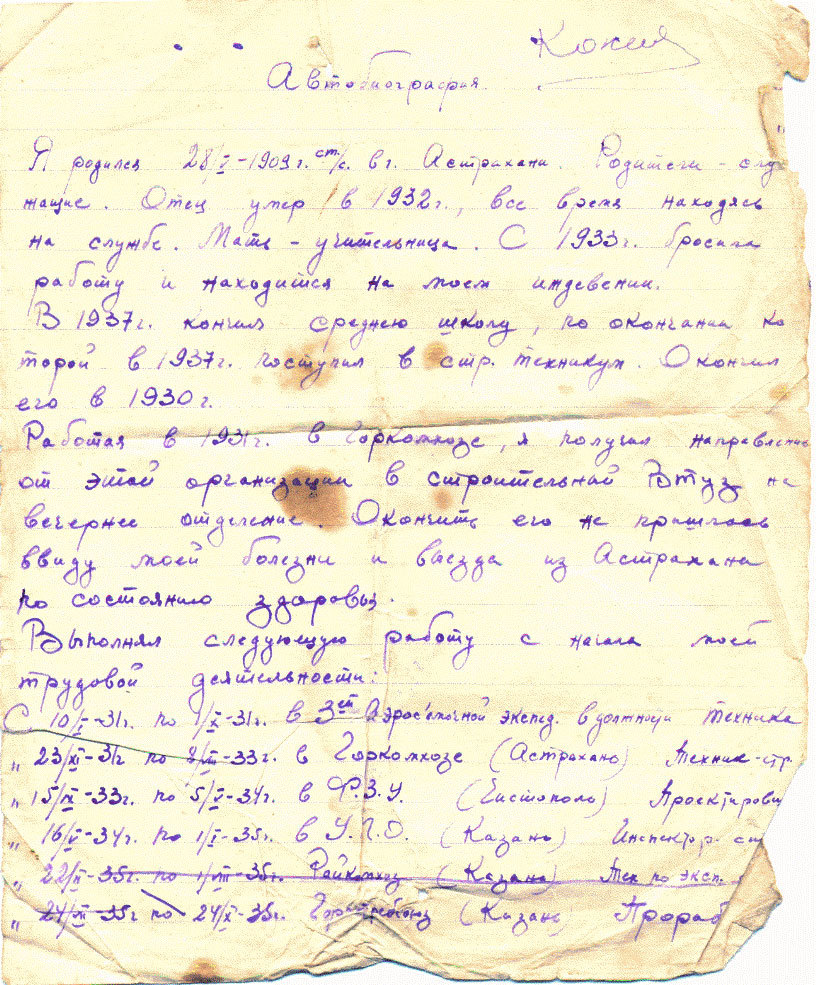 Кокш
Автобиография.
Я родился 28/V-1909 г. ст/с. в г. Астрахани. Родители - слу
жащие. Отец умер в 1932г., все время находясь
на службе. Мать - учительница. С 1933г. бросила
работу и находится на моем иждевении.
В 1937г. кончил среднею школу, по окончании ко
торой в 1937г. поступил в стр. техникум. Окончил
его в 1930г.
Работая в 1931г. в Горкомхозе, я получил направление
от этой организации в строительный Втуз на
вечернее отделение. Окончить его не пришлось
ввиду моей болезни и выезда из Астрахани
по состоянию здоровья.
Выполнял следующую работу с начала моей
трудовой деятельности:
С 10/V-31г. по 1/X-31г. в 3ей Аэрос'емочной экспед. в должности техника
„ 23/XI-31г по 8/III-33г. в Горкомхозе (Астрахань) Техник-стр.
„ 15/IX-33г. по 5/V-34г. в Ф.З.У. (Чистополь) Проектиров
„ 16/V-34г. по 1/I-35г. в У.П.О. (Казань) Инспектор
„ 22/II-35г. по 1/VII-35г. Райкомхоз (Казань) Тех по эксп.
„ 24/VII-35г по 24/X-35г. (Казань) Прораб